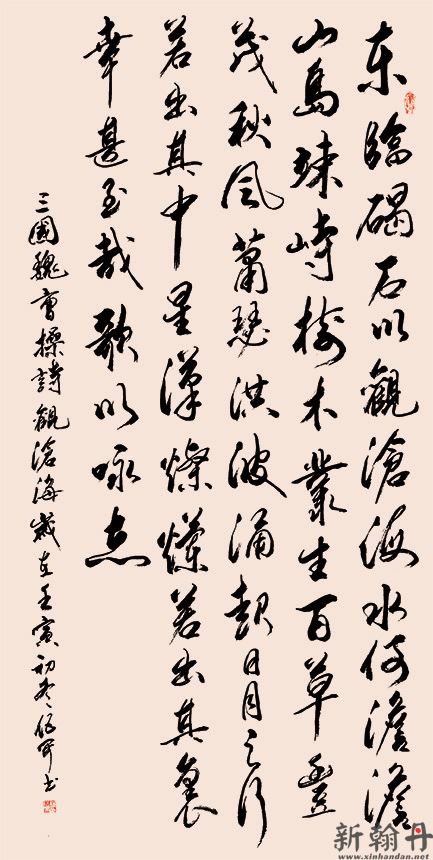 東臨碣石以觀滄海水何澹澹
山島竦峙樹木叢生百草豐
茂秋風蕭瑟洪波涌起日月之行
若出其中星漢燦爛若出其裏
幸甚至哉歌以咏志
三國魏曹操詩觀滄海歲在壬寅初冬書
新翰丹
www.xinhandan.net